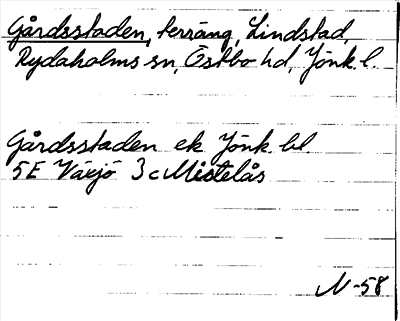 Gårdsstaden, terräng, Lindstad,
Rydaholms sn, Östbo hd, Jönk. l.
Gårdsstaden ek Jönk. bl
5E Växjö 3c Mistelås
N-58